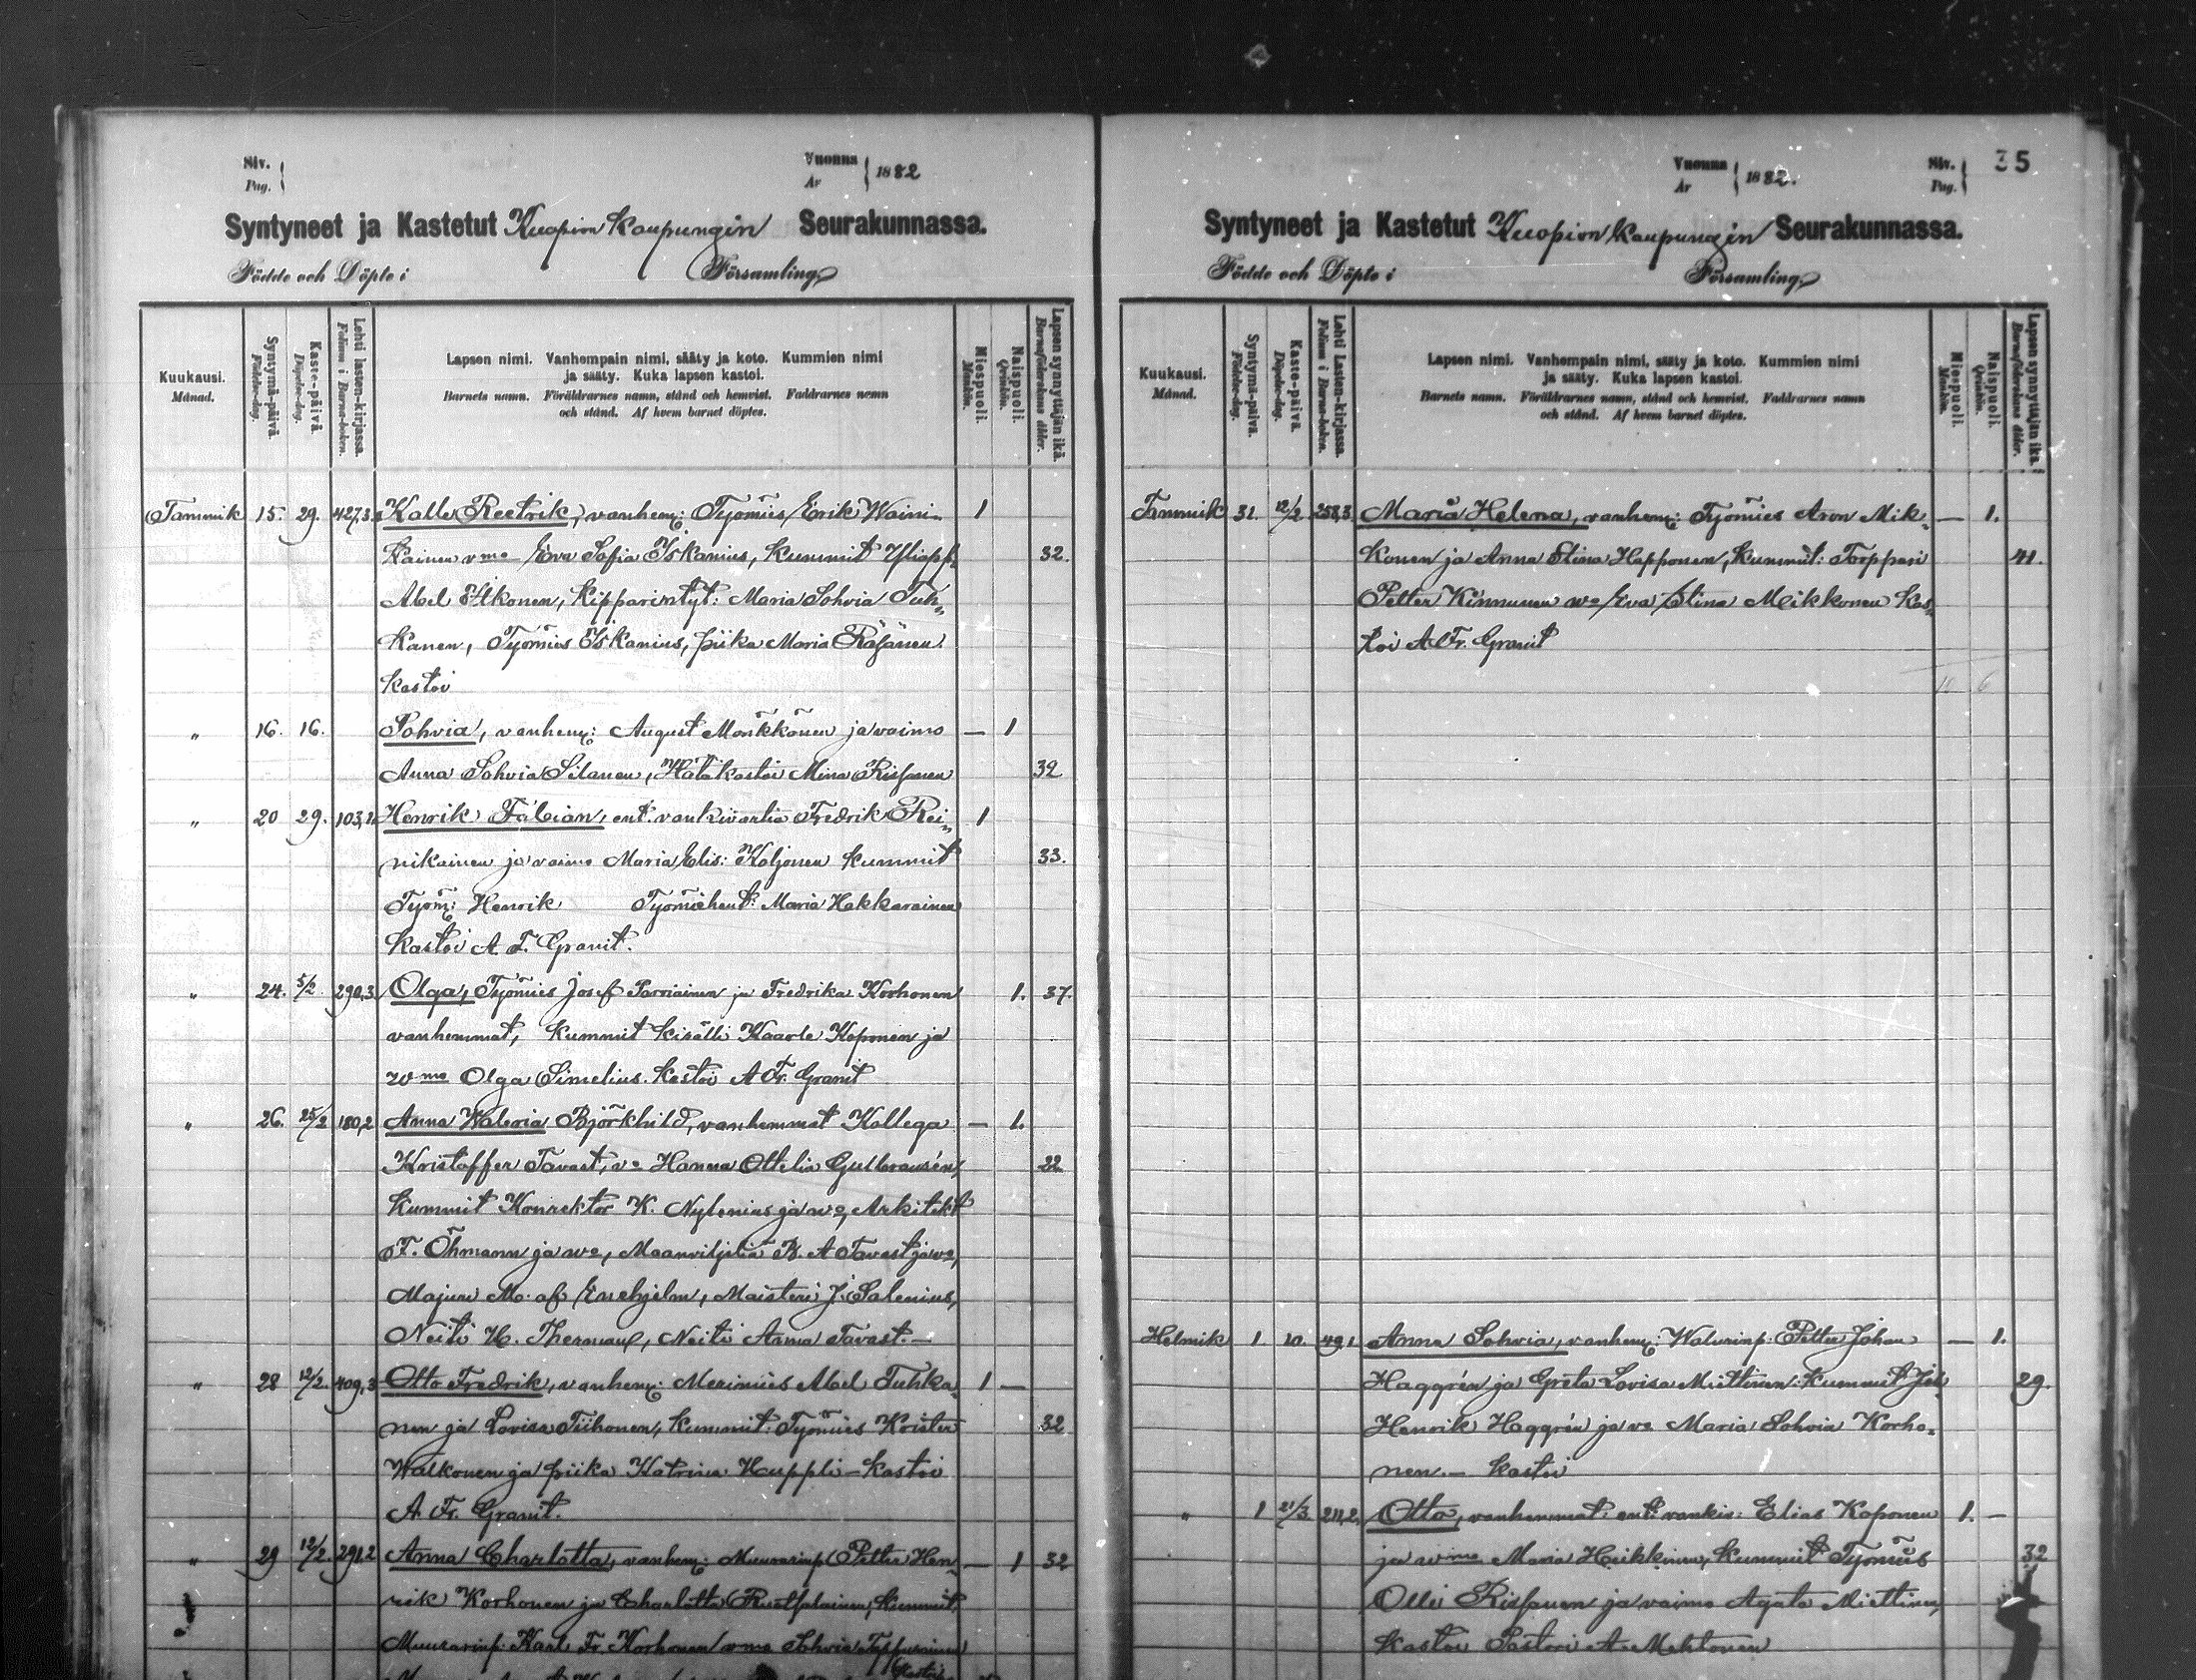 Siv.
Pag.
Vuonna
År
1882
Syntyneet ja Kastetut Kuopion Kaupungin Seurakunnassa.
Födde och Döpte i Församling
Kuukausi.
Månad.
Syntymä-päivä.
Födelse-dag.
Kaste-päivä.
Döpelse-dag.
Lehti lasten-kirjassa.
Folium i Barna-boken.
Lapsen nimi. Vanhempain nimi, sääty ja koto. Kummien nimi
ja sääty. Kuka lapsen kastoi.
Barnets namn. Föräldrarnes namn, stånd och hemvist. Faddrarnes namn
och stånd. Af hvem barnet döptes.
Miespuoli.
Mankön.
Naispuoli.
Qvinkön.
Lapsen synnyttäjän ikä.
Barnaföderskans ålder.
Tammik 15. 29. 427,3 Kalle Reetrik, vanhem: Työmies Erik Waini- 1
kainen vmo Eva Sofia Iskanius, Kummit 32.
Abel Itkonen, Maria Sohvia Tuh-
kanen, Työmies Iskanius, piika Maria Räsänen
kastoi
" 16. 16. Sohvia, vanhem: August Mönkkönen ja vaimo — 1
Anna Sohvia Silanen, Hätäkastoi Mina Rissanen 32
" 20 29. 103,1 Henrik Fabian, ent. vankivartia Fredrik Rei- 1
nikainen ja vaimo Maria Elis: Koljonen kummit 33.
Työm: Henrik Työmiehent: Maria Hakkarainen
kastoi A. F. Granit.
" 24. 5/2 290,3 Olga, Työmies Josef Parviainen ja Fredrika Korhonen 1. 37.
vanhemmat, Kummit kisälli Kaarle Koponen ja
vmo Olga Simelius. Kastoi A Fr. Granit
" 26. 25/2 180,2 Anna Waleria Björkhild, vanhemmat Kollega — 1.
Kristoffer Tavast, vo Hanna Ottelia 22
Kummit Konrektor K. Nylenius ja wo, Arkitekt
F. Öhmann ja wo, Maanviljeliä B. A Tavast ja wo,
Majuri M. af Enehjelm, Maisteri J. Salenius,
Neiti H. Therman, Neiti Anna Tavast.—
" 28 12/2. 409,3 Otto Fredrik, vanhem: Merimies Abel Tuhka- 1 —
nen ja Lovisa Tiihonen, Kummit: Työmies Krister 32
Walkonen ja piika Katrina Kuppli — Kastoi
A. Fr. Granit.
" 29 12/2. 291,2 Anna Charlotta, vanhem: Muurarinp Petter Hen- — 1 32
rik Korhonen ja Charlotta Ruotsalainen, Kummit,
Muurarinp. Karl Fr. Korhonen vmo Sohvia
Siv.
Pag.
35
Vuonna
År
1882.
Syntyneet ja Kastetut Kuopion kaupungin Seurakunnassa.
Födde och Döpte i Församling
Kuukausi.
Månad.
Syntymä-päivä.
Födelse-dag.
Kaste-päivä.
Döpelse-dag.
Lehti Lasten-kirjassa.
Folium i Barna-boken.
Lapsen nimi. Vanhempain nimi, sääty ja koto. Kummien nimi
ja sääty. Kuka lapsen kastoi.
Barnets namn. Föräldrarnes namn, stånd och hemvist. Faddrarnes namn
och stånd. Af hvem barnet döptes.
Miespuoli.
Mankön.
Naispuoli.
Qvinkön.
Lapsen synnyttäjän ikä.
Barnaföderskans ålder.
Tammik 31. 12/2 258,3 Maria Helena, vanhem: Työmies Aron Mik- — 1.
konen ja Anna Stina Happonen, Kummit: Torppari 41.
Petter Kinnunen wo Eva Stina Mikkonen Kas-
toi A Fr. Granit
10 6
Helmik 1. 20. 49,1 Anna Sohvia, vanhem: Walurinp: Petter Johan — 1.
Haggrén ja Greta Lovisa Miettinen: Kummit 29.
Henrik Haggrén ja vo Maria Sohvia Korho-
nen.— kastoi
" 1 21/3 211,2 Otto, vanhemmat: ent: vankiv: Elias Koponen 1. —
ja wmo Maria Heikkinen, Kummit Työmies 32
Olli Rissanen ja vaimo Agata Miettinen,
Kastoi Pastori A. Mehtonen